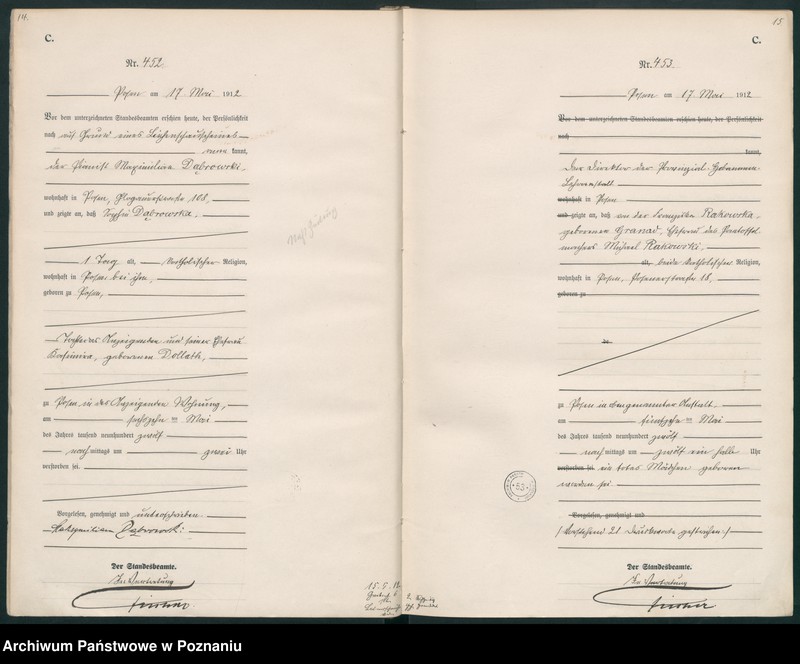 14.
C.
Nr. 452.
Posen am 17 Mai 1912
Vor dem unterzeichneten Standesbeamten erschien heute, der Persönlichkeit
nach auf Grund eines Leichenschauscheines
kannt,
der Pianist Maximilian Dąbrowski,
wohnhaft in Posen, Glogauerstrasse 108,
und zeigte an, daß Sophia Dąbrowska,
1 Tag alt, katholischer Religion,
wohnhaft in Posen bei ihm,
geboren zu Posen,
Tochter des Anzeigenden und seiner Ehefrau
Kasimira, geborenen Dollath,
zu Posen in des Anzeigenden Wohnung,
am sechszehn ten Mai
des Jahres tausend neunhundert zwölf
nachmittags um zwei Uhr
verstorben sei.
Vorgelesen, genehmigt und unterschrieben.
Maksymilian Dąbrowski.
Der Standesbeamte.
In Vertretung
15.
C.
Nr. 453.
Posen am 17 Mai 1912
Vor dem unterzeichneten Standesbeamten erschien heute, der Persönlichkeit
nach
kannt,
Der Direktor der Provinzial-Hebammen-
Lehranstalt
wohnhaft in Posen
und zeigte an, daß von der Franziska Rakowska,
geborenen Granad, Ehefrau des
Michael Rakowski,
alt, beide katholischer Religion,
wohnhaft in Posen, Posenerstrasse 18,
geboren zu
zu Posen in obengenannter Anstalt,
am fünfzehn ten Mai
des Jahres tausend neunhundert zwölf
nachmittags um zwölf ein halb Uhr
verstorben sei. ein totes Mädchen geboren
worden sei.
Vorgelesen, genehmigt und
(Vorstehend 21 Druckworte gestrichen.)
Der Standesbeamte.
In Vertretung
53
Archiwum Państwowe w Poznaniu